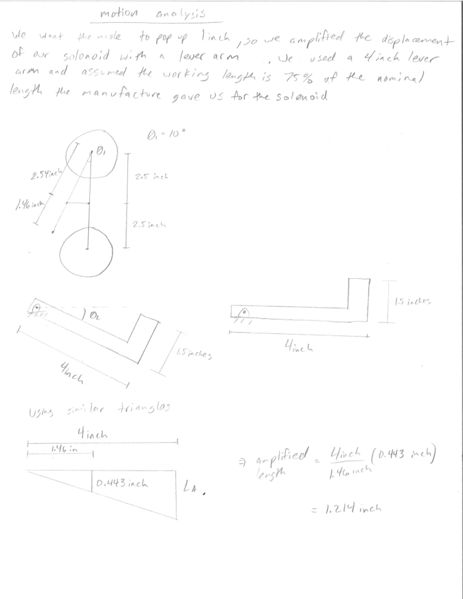 motion analysis
We want the mole to pop up 1 inch, so we amplified the displacement
of our solonoid with a lever arm. We used a 4 inch lever
arm and assumed the working length is 75% of the nominal
length the manufacture gave us for the solonoid
θ₁ = 10°
θ₁
2.54 inch
1.46 inch
2.5 inch
2.5 inch
θ₂
1.5 inches
4 inch
1.5 inches
4 inch
Using similar triangles
4 inch
1.46 in
0.443 inch
LA.
⇒ amplified length = 4 inch / 1.46 inch (0.443 inch)
= 1.214 inch